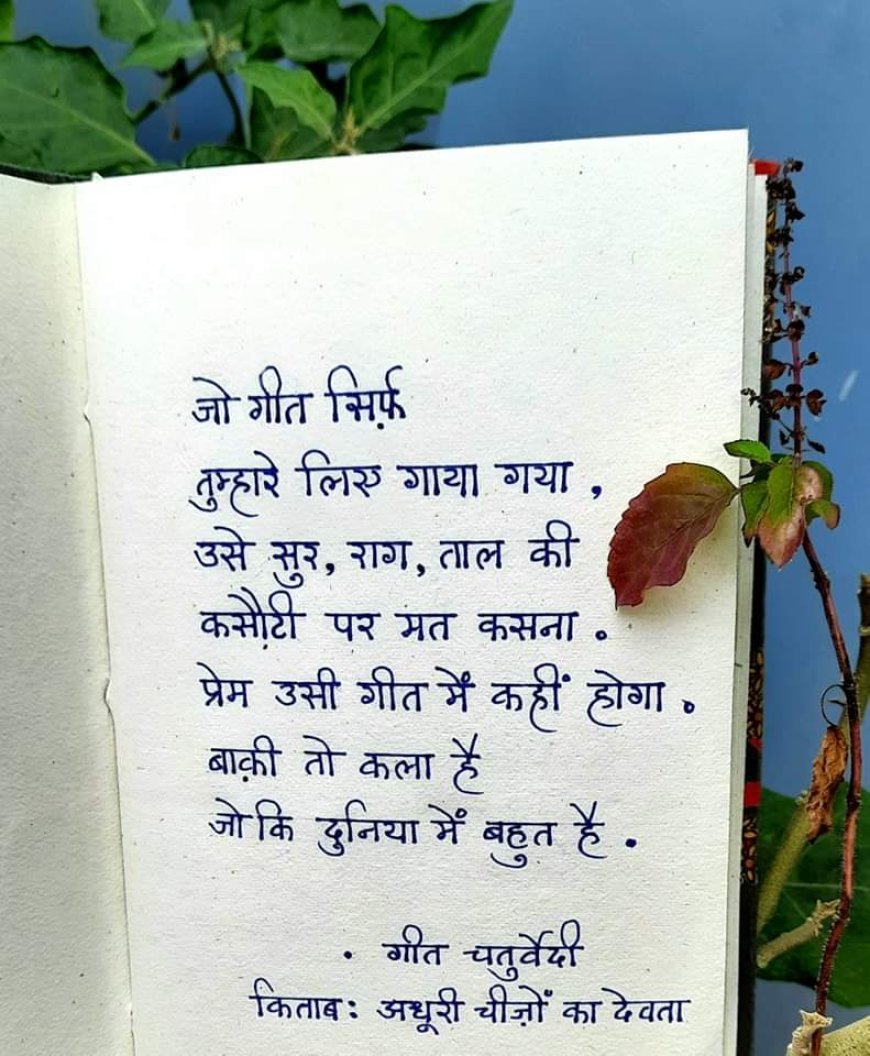 जो गीत सिर्फ़
तुम्हारे लिए गाया गया ,
उसे सुर, राग, ताल की
कसौटी पर मत कसना .
प्रेम उसी गीत में कहीं होगा .
बाक़ी तो कला है
जो कि दुनिया में बहुत है .
. गीत चतुर्वेदी
किताब : अधूरी चीज़ों का देवता